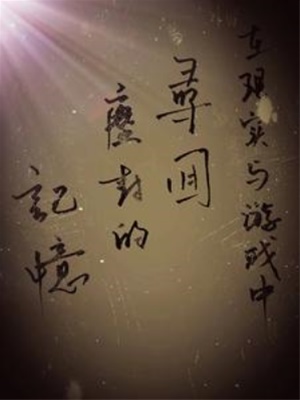 在现实与游戏中
尋回
塵封的
記憶